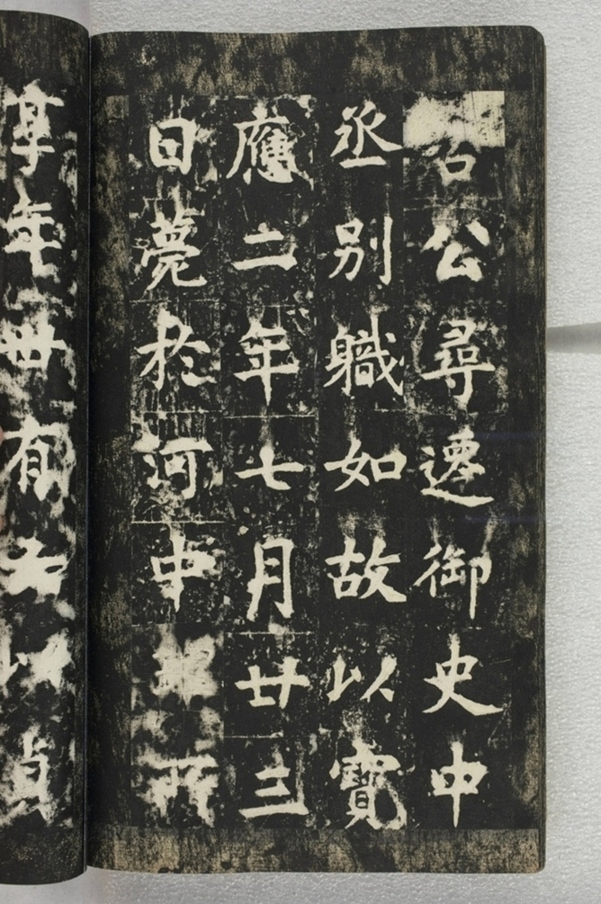 公尋遷御史中
丞别職如故以寶
應二年七月廿三
日薨於河中
年
有
以貞